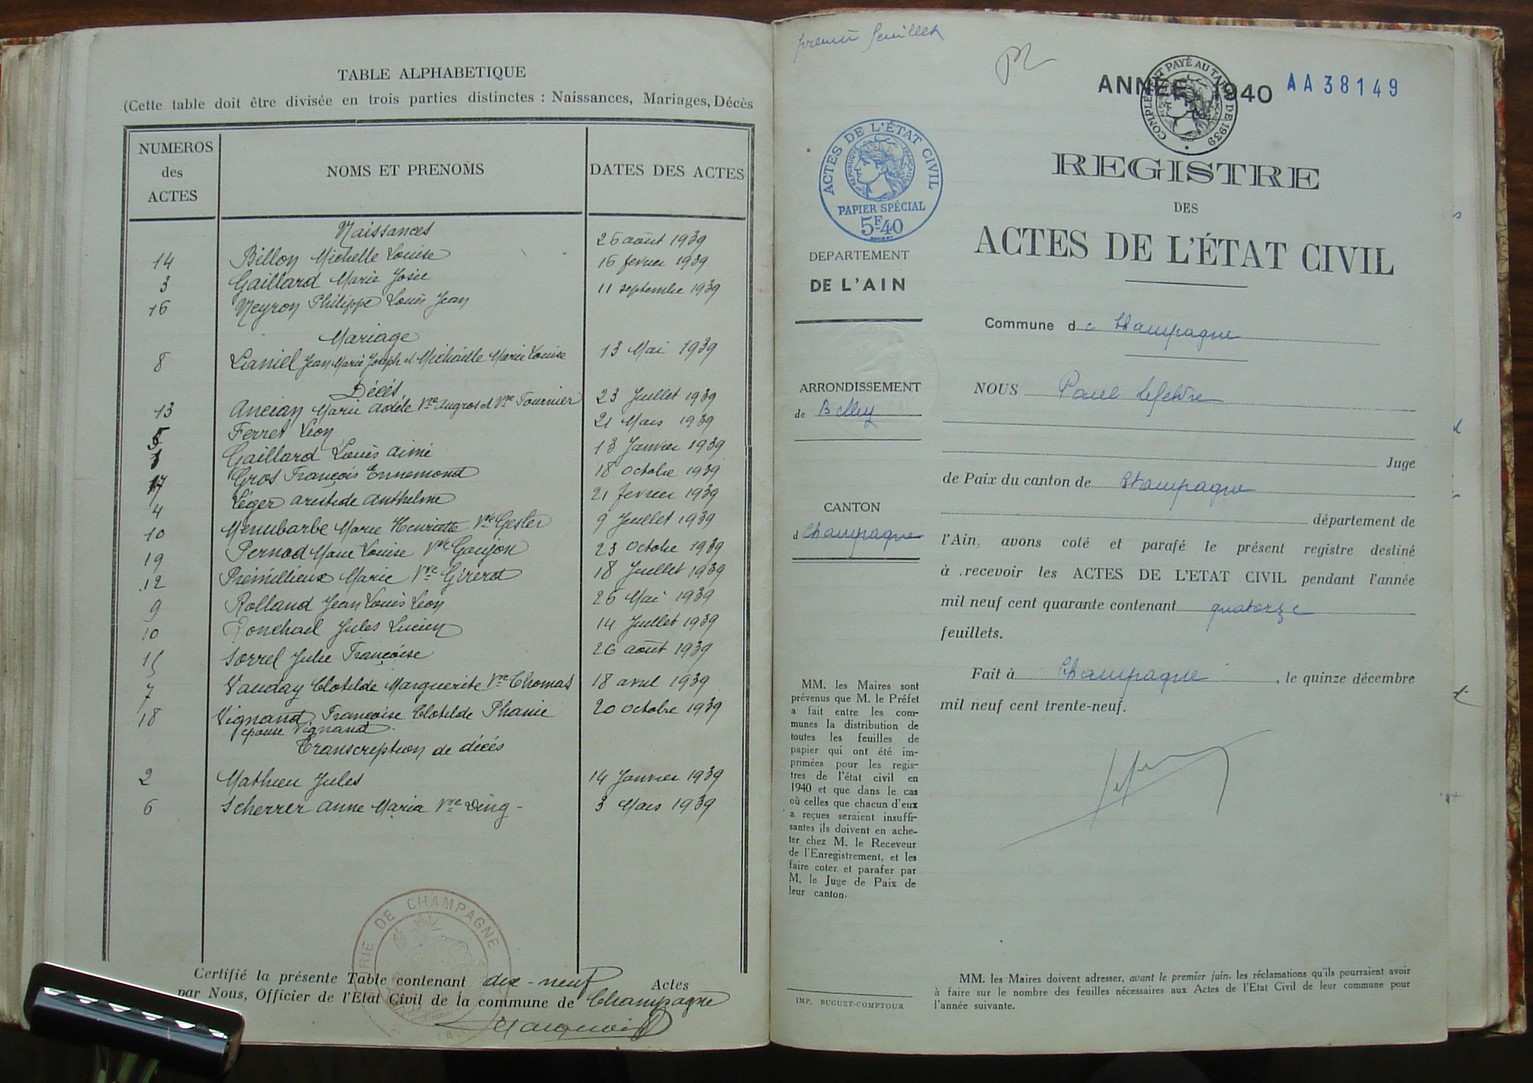 TABLE ALPHABETIQUE
(Cette table doit être divisée en trois parties distinctes : Naissances, Mariages, Décès
NUMEROS des ACTES
NOMS ET PRENOMS
DATES DES ACTES
Naissances
14 Billon Michelle Louise 26 août 1939
3 Gaillard Marie Josée 16 fevrier 1939
16 Neyron Philippe Louis Jean 11 septembre 1939
Mariage
8 Laniel Jean Marie Joseph et Michaille Marie Louise 13 Mai 1939
Décés
13 Ancian Marie Adèle Vve Augros et Vve Fournier 23 Juillet 1939
5 Ferret Léon 21 Mars 1939
1 Gaillard Louis aimé 13 Janvier 1939
17 Gros François Ennemond 18 Octobre 1939
4 Léger aristide anthelme 21 fevrier 1939
10 Menubarbe Marie Henriette Vve Gesler 9 Juillet 1939
19 Pernod Marie Louise Vve Goujon 23 Octobre 1939
12 Prémillieux Marie Vve Girerd 18 Juillet 1939
9 Rolland Jean Louis Léon 26 Mai 1939
10 Ronchail Jules Lucien 14 Juillet 1939
15 Sorrel Julie Françoise 26 août 1939
7 Vauday Clotilde Marguerite Vve Thomas 18 avril 1939
18 Vignand Françoise Clotilde Phanie 20 octobre 1939
épouse Vignand
Transcription de décés
2 Mathieu Jules 14 Janvier 1939
6 Scherrer anne Maria Vve Ding - 3 Mars 1939
MAIRIE DE CHAMPAGNE
Certifié la présente Table contenant dix-neuf Actes
par Nous, Officier de l'Etat Civil de la commune de Champagne
premier feuillet
ANNEE 1940 AA38149
COMPLÉMENT PAYÉ AU TARIF DE 1939
ACTES DE L'ÉTAT CIVIL
PAPIER SPÉCIAL
5F40
REGISTRE
DES
ACTES DE L'ÉTAT CIVIL
DEPARTEMENT
DE L'AIN
Commune de Champagne
ARRONDISSEMENT
de Belley
NOUS Paul Lefebvre
Juge
de Paix du canton de Champagne
CANTON
d Champagne
département de
l'Ain, avons coté et parafé le présent registre destiné
à recevoir les ACTES DE L'ETAT CIVIL pendant l'année
mil neuf cent quarante contenant quatorze
feuillets.
Fait à Champagne, le quinze décembre
mil neuf cent trente-neuf.
MM. les Maires sont
prévenus que M. le Préfet
a fait entre les com-
munes la distribution de
toutes les feuilles de
papier qui ont été im-
primées pour les regis-
tres de l'état civil en
1940 et que dans le cas
où celles que chacun d'eux
a reçues seraient insuffi-
santes ils doivent en ache-
ter chez M. le Receveur
de l'Enregistrement, et les
faire coter et parafer par
M. le Juge de Paix de
leur canton.
IMP. BUGUET-COMPTOUR
MM. les Maires doivent adresser, avant le premier juin, les réclamations qu'ils pourraient avoir
à faire sur le nombre des feuilles nécessaires aux Actes de l'Etat Civil de leur commune pour
l'année suivante.